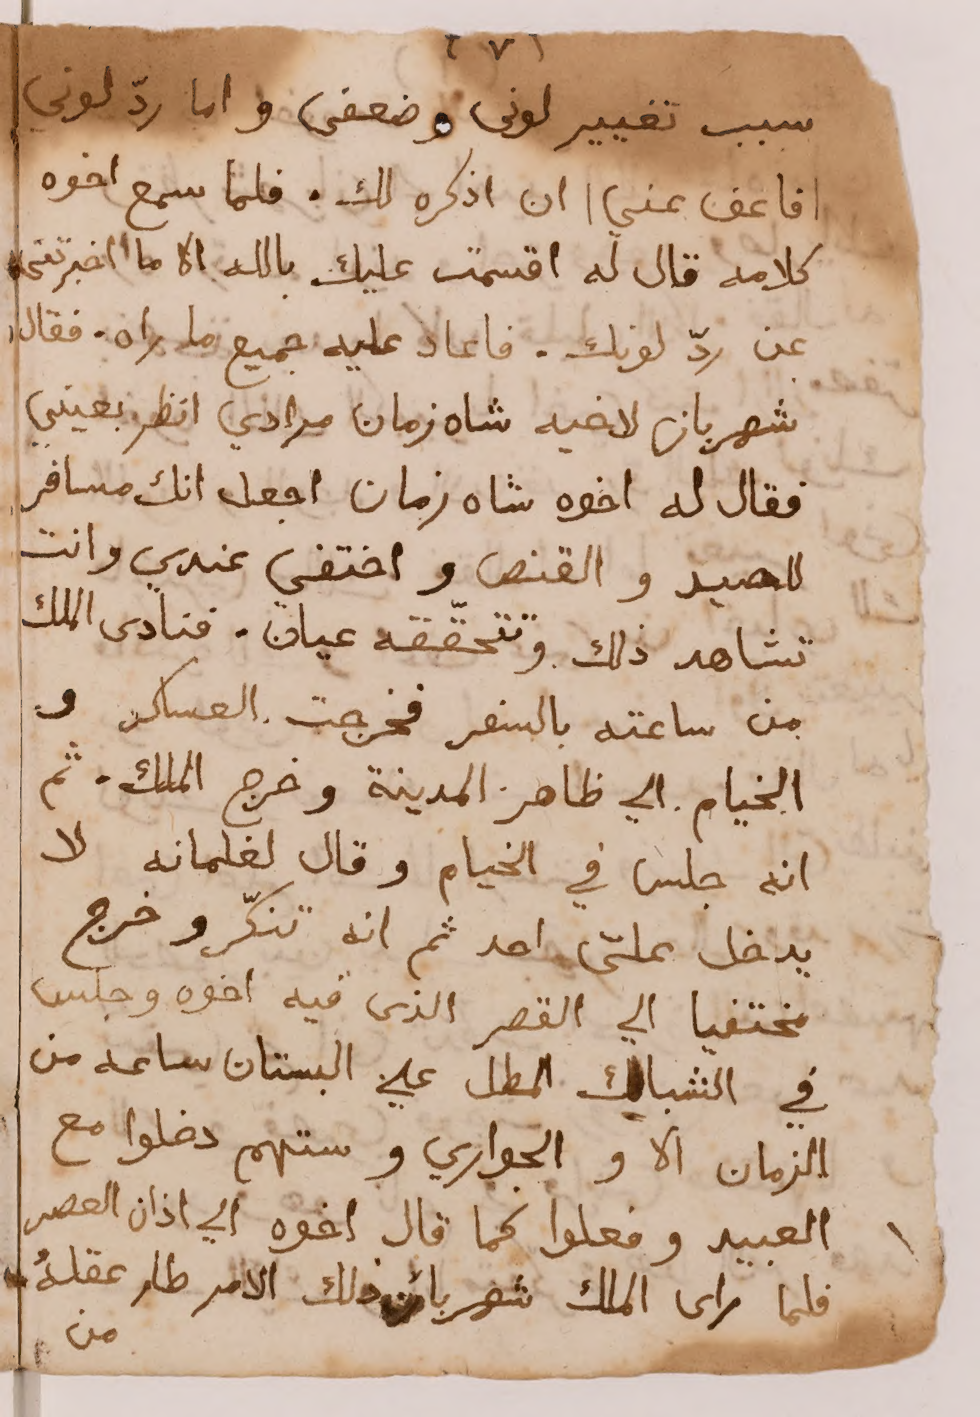 (٧)
سبب تغيير لونى وضعفى و اما ردّ لوني
فاعف عني ان اذكره لك . فلما سمع اخوه
كلامه قال له اقسمت عليك بالله الا ما اخبرتنى
عن ردّ لونك . فاعاد عليه جميع ما راه . فقال
شهرباز لاخيه شاه زمان مرادي انظر بعيني
فقال له اخوه شاه زمان اجعل انك مسافر
للصيد و القنص و اختفي عندي وانت
تشاهد ذلك وتتحقّقه عيان . فنادى الملك
من ساعته بالسفر فخرجت العساكر و
الخيام الي ظاهر المدينة و خرج الملك . ثم
انه جلس في الخيام و قال لغلمانه لا
يدخل علىّ احد ثم انه تنكّر و خرج
مختفيا الي القصر الذى فيه اخوه و جلس
في الشباك المطل علي البستان ساعه من
الزمان الا و الجواري و ستهم دخلوا مع
العبيد و فعلوا كما قال اخوه الي اذان العصر
فلما راى الملك شهرباز ذلك الامر طار عقلهُ
من